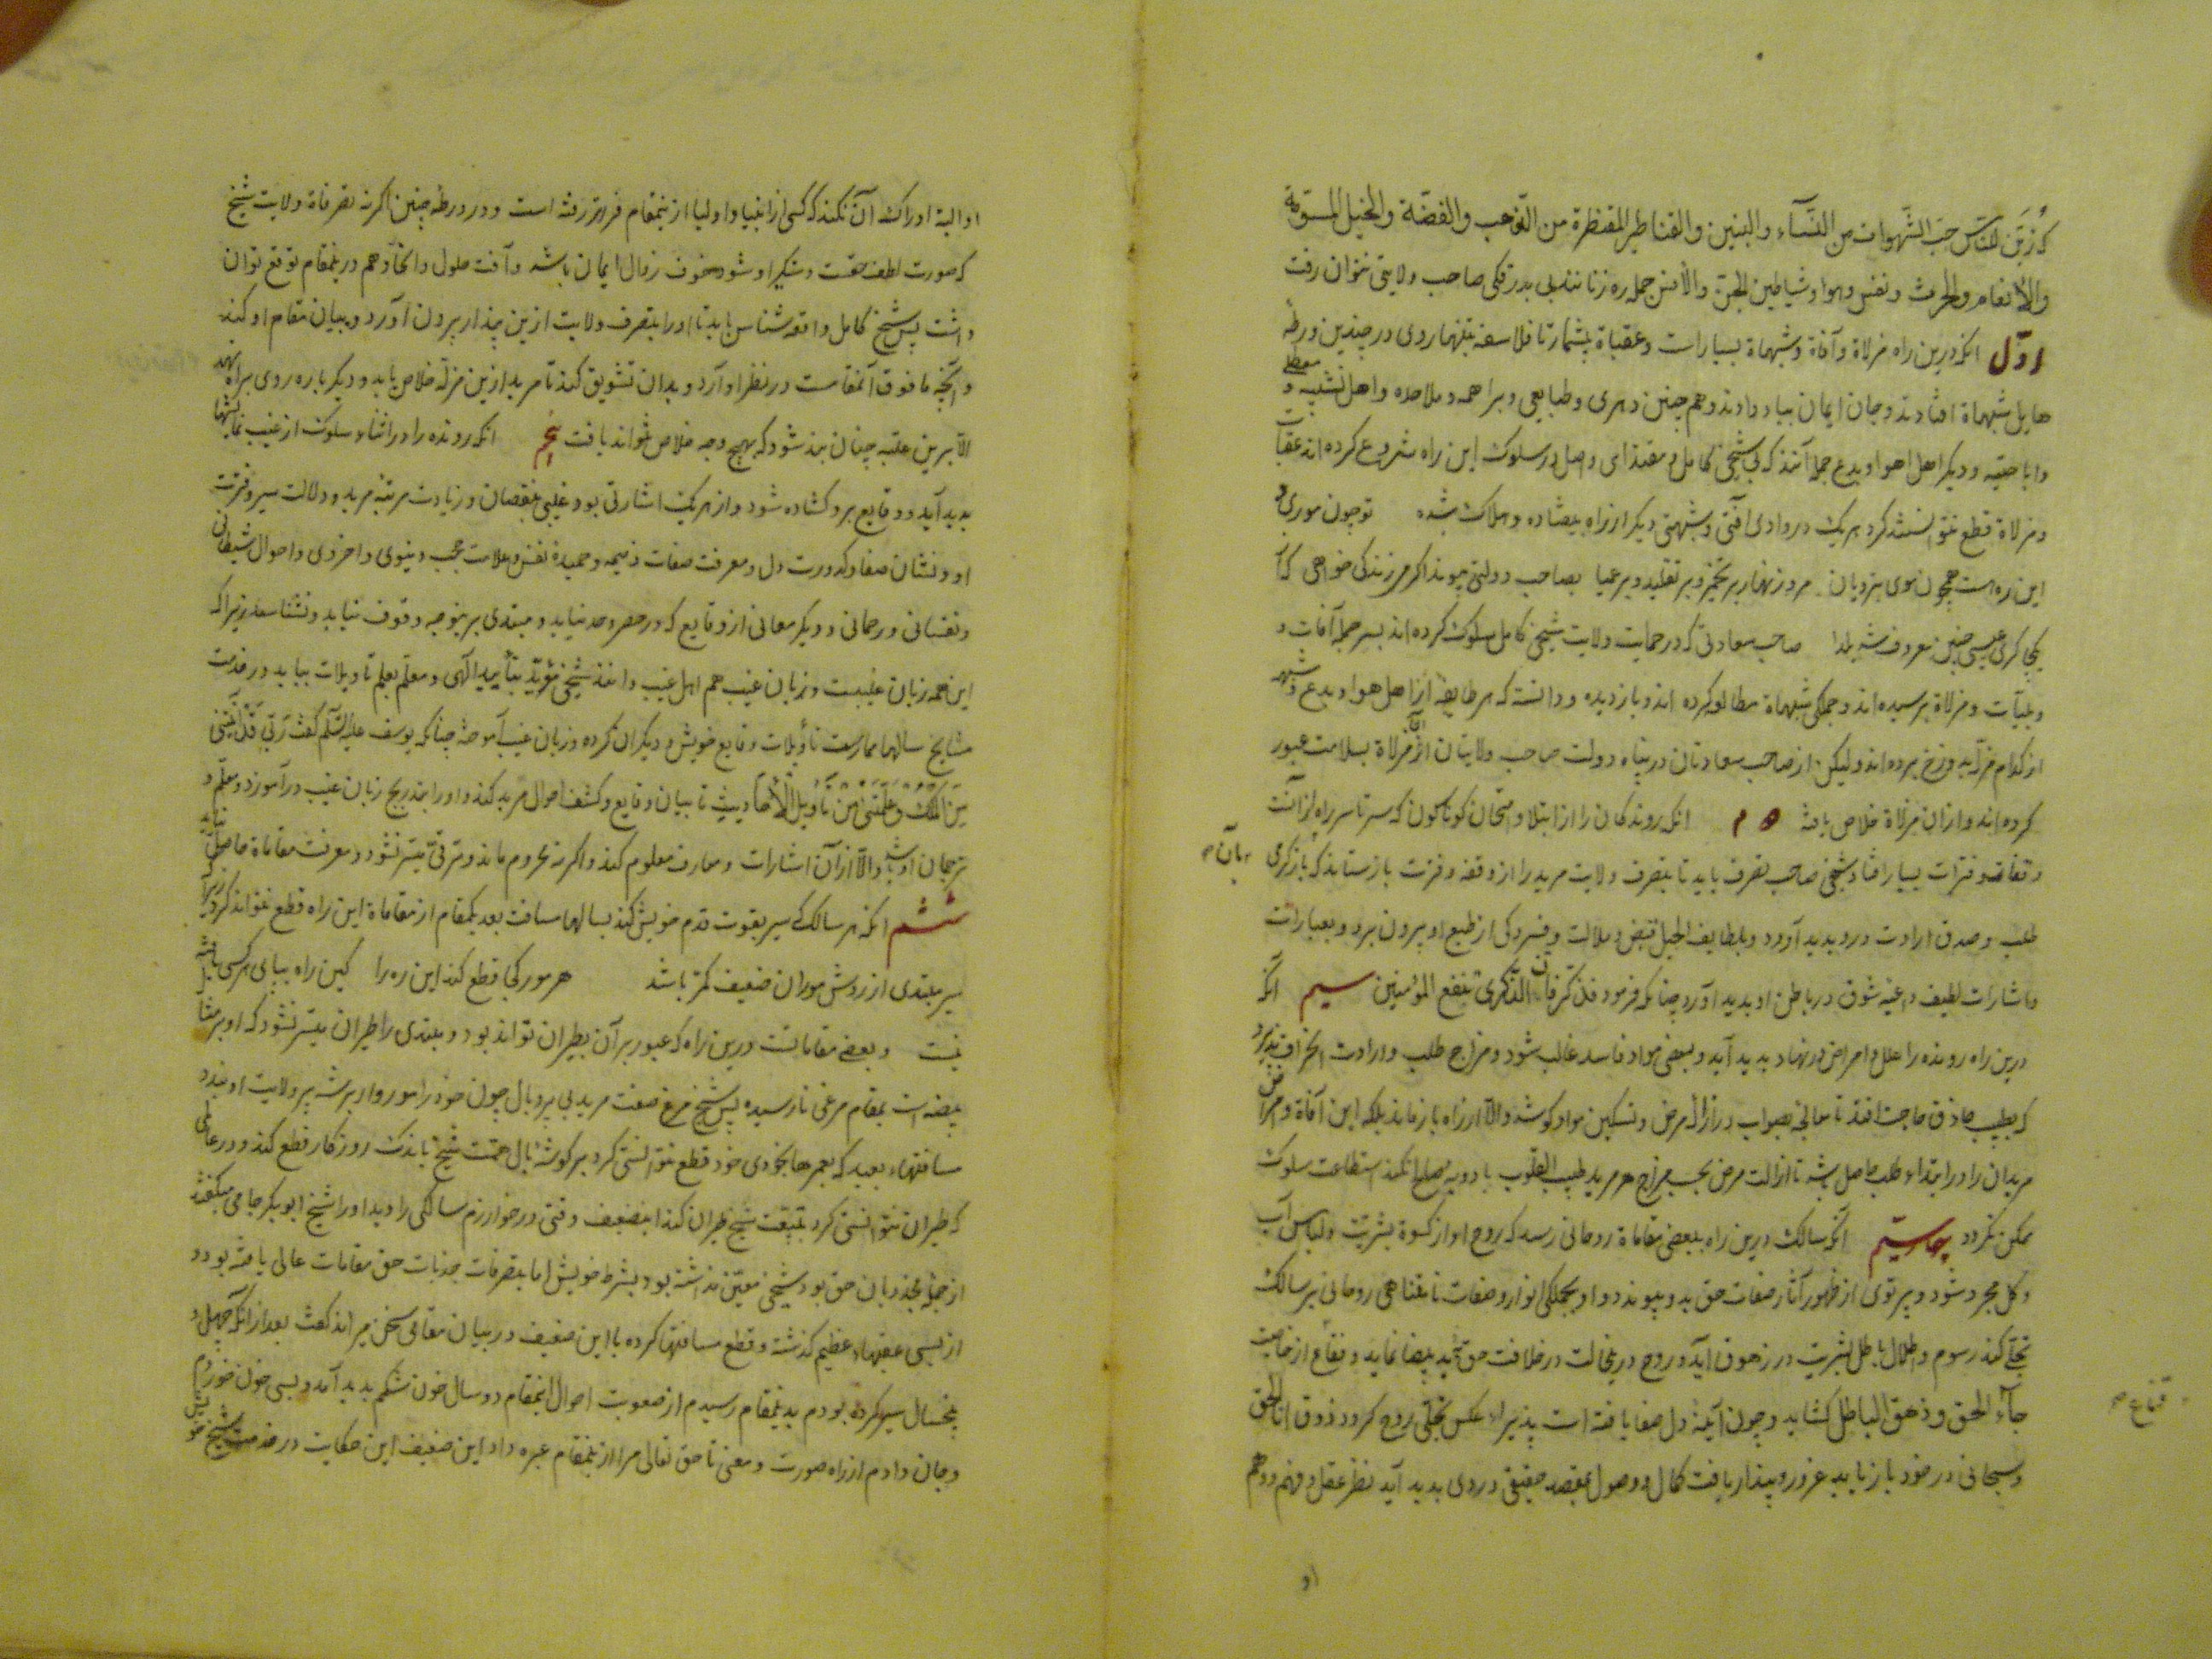 که زُیِّنَ للنّاس حبّ الشّهوات من النّسآء والبنین والقناطیر المقنطرة من الذّهب والفضّة والخیل المسوّمة
والأنعام والحرث ونفس وهوا وشیاطین الجنّ والانس جمله ره زنانند بی بدرقکی صاحب ولایتی نتوان رفت
اوّل انکه درین راه مزلاة وآفاة وشبهاة بسیارات وعقباة بیشمار تا فلاسفه بتنهاروی در چندین ورطه
هایل شبهاة افتادند وجان ایمان بباد دادند وهم چنین دهری وطبایعی وبراهمه وملاحده واهل تشبیه و
معطله
واباحتیه ودیکر اهل اهوا وبدع جمله آنند که بی شیخی کامل ومقتدای واصل در سلوک این راه شروع کرده اند عقبات
ومزلاة قطع نتوانستند کرد هریک در وادی آفتی وشبهتی دیکر از راه بیفتاده وهلاک شده توچون موری و
این ره است همچون موی بترویان مرو زنهار بر تخمین وبر تقلید وبر عمیا
صاحب سعادتی که در حمایت ولایت شیخی کامل سلوک کرده اند بسر جمله آفات و
وبلیّات ومزلاة برسیده اند وجملکی شبهاة مطالعه کرده اند وباز دیده ودانسته که هر طایفه از اهل هوا وبدع
از کدام مزلّه بدوزخ برده اند ولیکن از صاحب سعادتان در پناه دولت صاحب ولایتان از مزلاة بسلامت عبور
کرده اند وازان مزلاة خلاص یافته دوم انکه روندکان را از ابتلا وامتحان کوناکون که سرتاسر راه ازآنست
وقفات وفترات بسیار افتاد شیخی صاحب تصرف باید تا بتصرف ولایت مرید را از وقفه وفترت بازستاند که باز کرمی
طلب وصدق ارادت درو پدید آورد وبلطایف الحیل قبض وملالت وفسردکی از طبع او بیرون برد وبعبارات
واشارات لطیف داعیۀ شوق در باطن او پدید آورد چنانکه فرمود فذکّر فان الذّکری تنفع المؤمنین سیم آنکه
درین راه رونده را علل وامراض در نهاد پدید آید وبعضی مواد فاسد غالب شود ومزاج طلب وارادت انحراف پذیرد
که بطبیب حاذق حاجت افتد تا معالجۀ بصواب در ازالۀ مرض وتسکین مواد کوشد والّا از راه بازماند بلکه این آفاة وامراض
مریدان را در ابتداء طلب حاصل باشد تا ازالت مرض بحسب مزاج هر مرید طبیب القلوب بادویه صالح نکند استطاعت سلوک
ممکن نکردد چهارم آنکه سالک درین راه ببعضی مقاماة روحانی رسد که روح او از کسوة بشریّت ولباس آب
وکل مجرد شود وپرتوی از ظهور آثار صفات حق بدو پیوندد واو بجملکی انوار وصفات نامتناهی روحانی بر سالک
تجلّی کند رسوم واطلال باطل بشریت در زهوق آید وروح درین حالت در خلافت حق ید بیضا نماید
جآء الحق وذهق الباطل کشاید وچون آینۀ دل صفا یافته است پذیراء عکس تجلّی روح کردد ذوق انا الحق
وسبحانی در خود باز یابد غرور وپندار یافت کمال ووصول بمقصد حقیقی در وی پدید آید نظر عقل وفهم ووهم
او
او البتّه ادراک آن نکند که کسی از انبیا واولیا ازین مقام فراتر رفته است ودر ورطه چنین اکر نه تصرفاة ولایت شیخ
که صورت لطف حقّست دستکیر او شود خوف زوال ایمان باشد وآفت حلول واتحاد هم درین مقام توقع توان
داشت پس شیخ کامل واقعه شناس باید تا او را بتصرف ولایت ازین پندار بیرون آورد وبیان مقام او کند
وآنچه مافوق آنمقامست در نظر او آرد وبدان تشویق کند تا مرید ازین مزلّه خلاص یابد ودیکر باره روی براه نهد
الّا برین عقبه چنان بند شود که بهیچ وجه خلاص نتواند یافت پنجم انکه رونده را در اثناء سلوک از غیب نمایشها
پدید آید ووقایع برو کشاده شود واز هریک اشارتی بود غیبی بنقصان وزیادت مرتبۀ مرید ودلالت سیر وفترت
او ونشان صفا وکدورت دل ومعرفت صفات ذمیمه وحمیدۀ نفس وعلامت حجب دنیوی واخروی واحوال شیطانی
ونفسانی ورحمانی ودیکر معانی از وقایع که در حصر وعد نیاید ومبتدی برین وجه وقوف نیابد ونشناسد زیراکه
این همه زبان غیبست وزبان غیب هم اهل غیب دانند شیخی مؤیّد بتأیید الهی ومعلّم بعلم تاویلات بباید در خدمت
مشایخ سالها ممارست تأویلات وقایع خویش ودیکران کرده وزبان غیب آموخته چنانکه یوسف علیه السّلام کفت رَبِّ قَدْ آتَیْتَنِی
مِنَ المُلْکِ وَعَلَّمْتَنِی مِنْ تَأْوِیلِ الْأَحَادِیثِ تا بیان وقایع وکشف احوال مرید کند واو را بتدریج زبان غیب در آموزد ومعلّم و
ترجمان او باشد والّا ازآن اشارات ومعارف معلوم کند واکر نه محروم ماند وترقّی میسّر نشود ومعرفت مقاماة حاصل نیاید
ششم انکه هر سالک که سیر بقوت قدم خویش کند بسالهای مسافت بعد یکمقام از مقاماة این راه قطع نتواند کرد زیرا که
سیر مبتدی از روش موران ضعیف کمتر باشد هر مور کجا قطع کند این ره را کین راه بپای هر کسی یافته
نیست وبعضی مقاماتست درین راه که عبور برآن بطیران تواند بود ومبتدی را طیران میسّر نشود که او بر مثال
بیضه است بمقام مرغی نارسیده پس شیخ مرغ صفت مرید بی پر وبال چون خود را مور وار بر شه پر ولایت او بندد
مسافتهاء بعید که بعمرها بخودی خود قطع نتوانستی کرد بر کوشۀ بال همّت شیخ باندک روزکار قطع کند ودر عالمی
که طیران نتوانستی کرد بتبعیّت شیخ طیران کند این ضعیف وقتی در خوارزم سالکی را دید او را شیخ ابوبکر جامی میکفتند
از جمله مجذوبان حق بود شیخی معیّن نداشته بود بشرط خویش اما بتصرفات جذبات حق مقامات عالی یافته بود و
از بسی عقبهاء عظیم کذشته وقطع مسافتها کرده با این ضعیف در بیان مقامی سخن میراند کفت بعد ازانکه چهل و
پنجسال سیر کرده بودم بدین مقام رسیدم از صعوبت احوال اینمقام دو سال خون شکم پدید آمد وبسی خون خوردم
وجان دادم از راه صورت ومعنی تا حق تعالی مرا ازین مقام عبره داد این ضعیف این حکایت در خدمت شیخ خویش